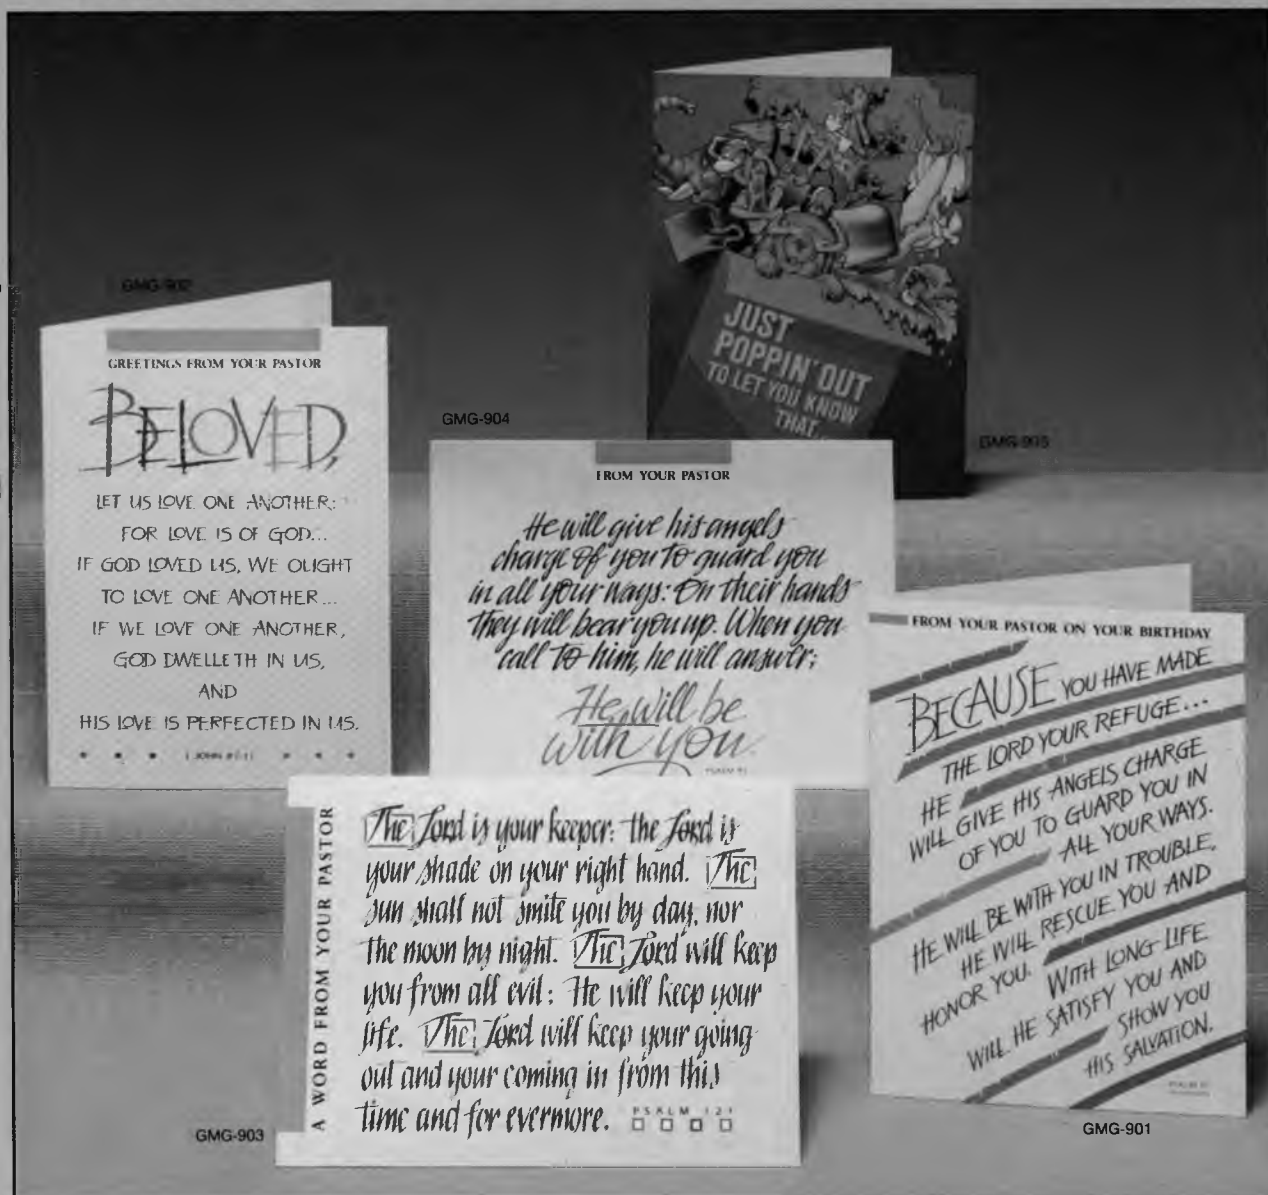 GMG-902
GREETINGS FROM YOUR PASTOR
BELOVED,
LET US LOVE ONE ANOTHER:
FOR LOVE IS OF GOD...
IF GOD LOVED US, WE OUGHT
TO LOVE ONE ANOTHER...
IF WE LOVE ONE ANOTHER,
GOD DWELLETH IN US,
AND
HIS LOVE IS PERFECTED IN US.
I JOHN
JUST
POPPIN' OUT
TO LET YOU KNOW
THAT...
GMG-905
GMG-904
FROM YOUR PASTOR
He will give his angels
charge of you to guard you
in all your ways: On their hands
they will bear you up. When you
call to him, he will answer;
He will be
with you.
PSALM 91
A WORD FROM YOUR PASTOR
The Lord is your keeper: the Lord is
your shade on your right hand. The
sun shall not smite you by day, nor
the moon by night. The Lord will keep
you from all evil: He will keep your
life. The Lord will keep your going
out and your coming in from this
time and for evermore. PSALM 121
GMG-903
FROM YOUR PASTOR ON YOUR BIRTHDAY
BECAUSE YOU HAVE MADE
THE LORD YOUR REFUGE...
HE
WILL GIVE HIS ANGELS CHARGE
OF YOU TO GUARD YOU IN
ALL YOUR WAYS.
HE WILL BE WITH YOU IN TROUBLE,
HE WILL RESCUE YOU AND
HONOR YOU.
WITH LONG LIFE
WILL HE SATISFY YOU AND
SHOW YOU
HIS SALVATION.
PSALM 91
GMG-901